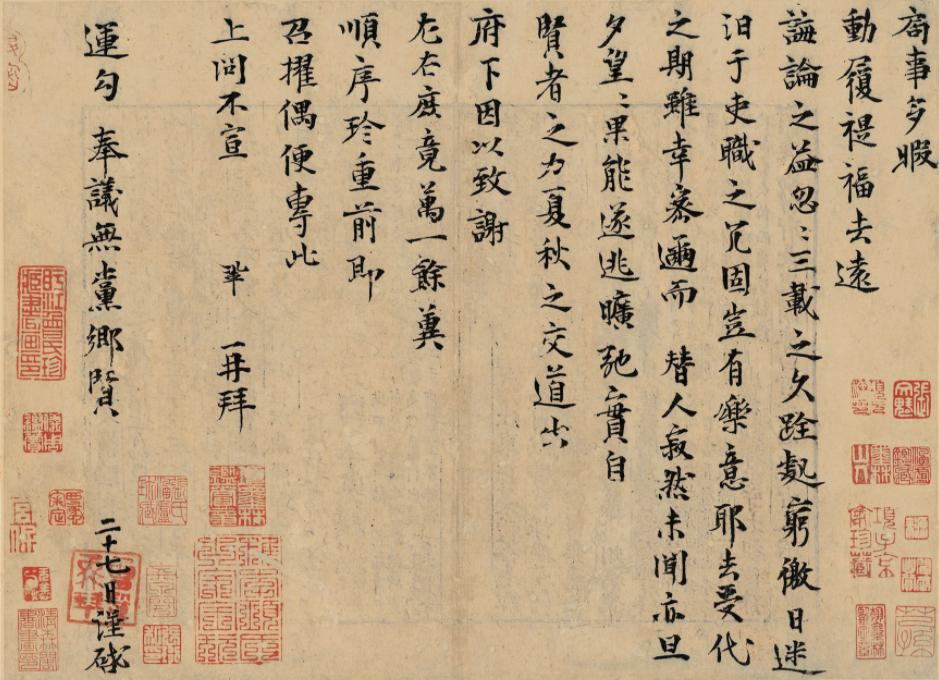 局事多暇
動履禔福去遠
誨論之益忽〻三載之久跧處窮徼日迷
汨于吏職之冗固豈有樂意耶去受代
之期雖幸密邇而 替人寂然未聞亦旦
夕望〻果能遂逃曠弛實自
賢者之力夏秋之交道出
府下因以致謝
左右庶竟萬一餘冀
順序珍重前即
召擢偶便專此
上問不宣 鞏 再拜
運勾 奉議無黨鄉賢 二十七日謹啟
項子京家珍藏